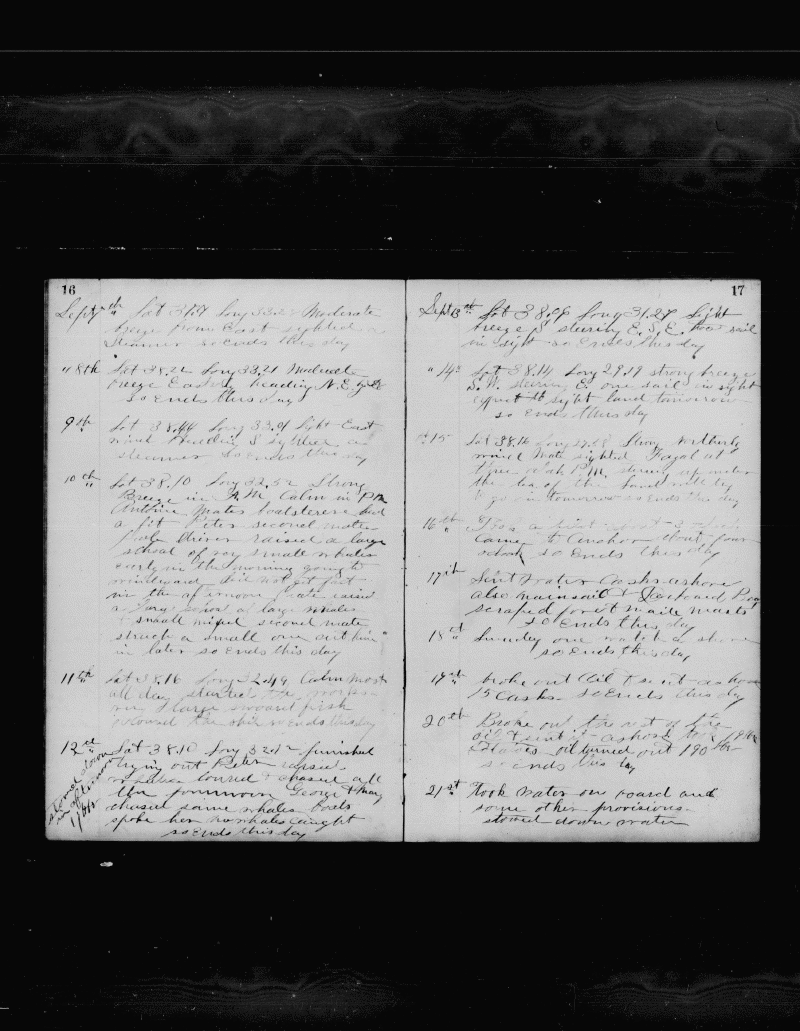 16
Sept 7th Lat 37.57 Long 33.22 Moderate
breeze from East sighted a
steamer so Ends this day
" 8th Lat 38.22 Long 33.21 Moderate
breeze Easterly heading N.E. by E
so Ends this day
9th Lat 38.44 Long 33.01 Light East
wind heading S sighted a
steamer so Ends this day
10th Lat 38.10 Long 32.52 Strong
Breeze in A.M. Calm in P.M.
Antoine mates boatsterer had
a fit Peter second mates
raised a large
school of small whales
early in the morning going to
windward did not get fast
in the afternoon raised
a large school a large whales
& small mixed second mate
struck a small one cut him
in later so Ends this day
11th Lat 38.16 Long 32.49 Calm most
all day started the
large sword fish
the so Ends this day
12th Lat 38.10 Long 32.12 finished
trying out Peter raised
whales lowered & chased all
the forenoon George & Mary
chased same whales boats
spoke her no whales caught
so Ends this day
stowed down
in afternoon
17
Sept 13th Lat 38.06 Long 31.27 Light
breeze S steering E.S.E. two sail
in sight so Ends this day
" 14th Lat 38.14 Long 29.19 strong breeze
S.W. steering E. one sail in sight
expect to sight land tomorrow
so Ends this day
15 Lat 38.16 Long 27.58 Strong Northerly
wind Mate sighted Fayal at
three o'ck P.M. steering up under
the lee of the land will try
& go in tomorrow so Ends this day
16th
Came to Anchor about four
oclock so Ends this day
17th Sent water casks ashore
also mainsail &
scraped fore & main masts
so Ends this day
18th Sunday one watch a shore
so Ends this day
19th broke out Oil & sent ashore
15 Casks. so Ends this day
20th Broke out the rest of the
oil & sent it ashore
oil turned out 190
so ends this day
21st took water on board and
some other provisions
stowed down water